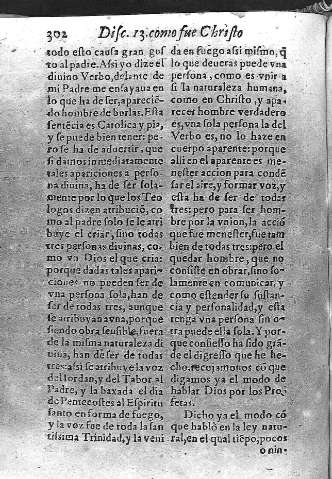 302 Disc. 13. como fue Christo
todo esto causa gran gus
to al padre. Assi yo dize el
diuino Verbo, delante de
mi Padre me ensayaua en
lo que ha de ser, apareciē-
do hombre de burlas. Esta
sentēcia es Catolica y pia,
y se puede bien tener: pe-
ro se ha de aduertir, que
si damos inmediatamente
tales apariciones a perso-
na diuina, ha de ser sola-
mente por lo que los Teo
logos dizen atribució, co
mo al padre solo se le atri
buye el criar, sino todas
tres personas diuinas, co-
mo vn Dios el que cria:
porque dadas tales apari-
ciones no pueden ser de
vna persona sola, han de
ser de todas tres, aunque
se atribuyan a vna, porque
siendo obra sensible, fuera
de la misma naturaleza di
uina, han de ser de todas
tres: assi se atribuye la voz
del Iordan, y del Tabor al
Padre, y la baxada el dia
de Pentecostes al Espiritu
santo en forma de fuego,
y la voz fue de toda la san
tissima Trinidad, y la veni
da en fuego assi mismo, q̃
lo que deueras puede vna
persona, como es vnir a
si la naturaleza humana,
como en Christo, y apa-
reces hombre verdadero
es, vna sola persona la del
Verbo es, no lo haze en
cuerpo aparente: porque
alli en el aparente es me-
nester accion para conden
sar el aire, y formar voz, y
esta ha de ser de todas
tres: pero para ser hom-
bre por la vnion, la acció
que fue menester, fue tam
bien de todas tres: pero el
quedar hombre, que no
consiste en obrar, sino so-
lamente en comunicar, y
como estender su sustan-
cia y personalidad, y esta
tenga vna persona sin o-
tra puede ella sola. Y por-
que confiesso ha sido grā-
de el digresso que he he-
cho, recojamonos có que
digamos ya el modo de
hablar Dios por los Pro-
fetas.
Dicho ya el modo có
que habló en la ley natu-
ral, en el qual tiẽpo, pocos
o nin-